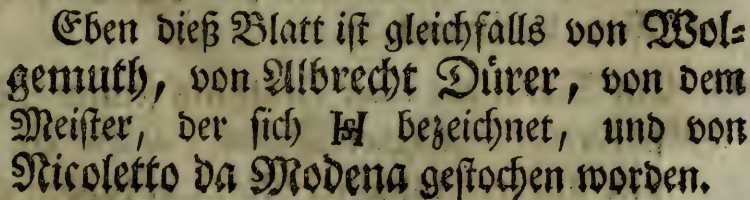 Eben dieß Blatt ist gleichfalls von Wol=
gemuth, von Albrecht Dürer, von dem
Meister, der sich bezeichnet, und von
Nicoletto da Modena gestochen worden.